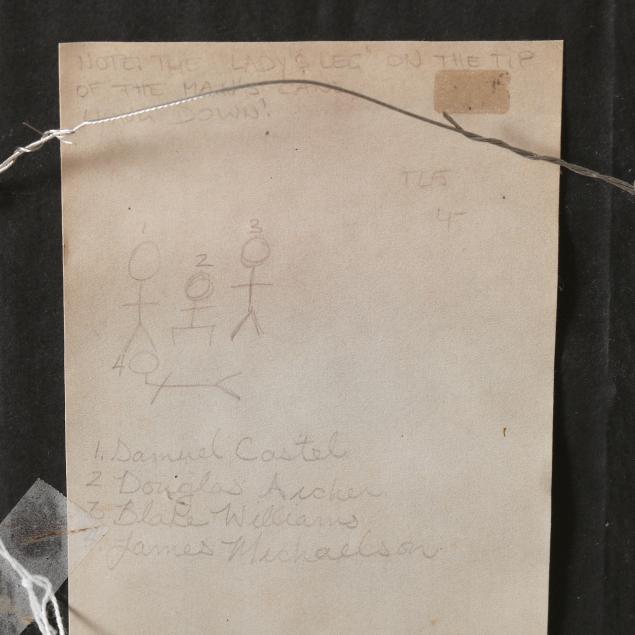 NOTE: THE "LADY'S LEG" ON THE TIP
OF THE MAN'S CANE
HUNG DOWN!
TL5
4-
1
2
3
4
1. Samuel Castel
2 Douglas Archer
3 Blake Williams
4. James Michaelson